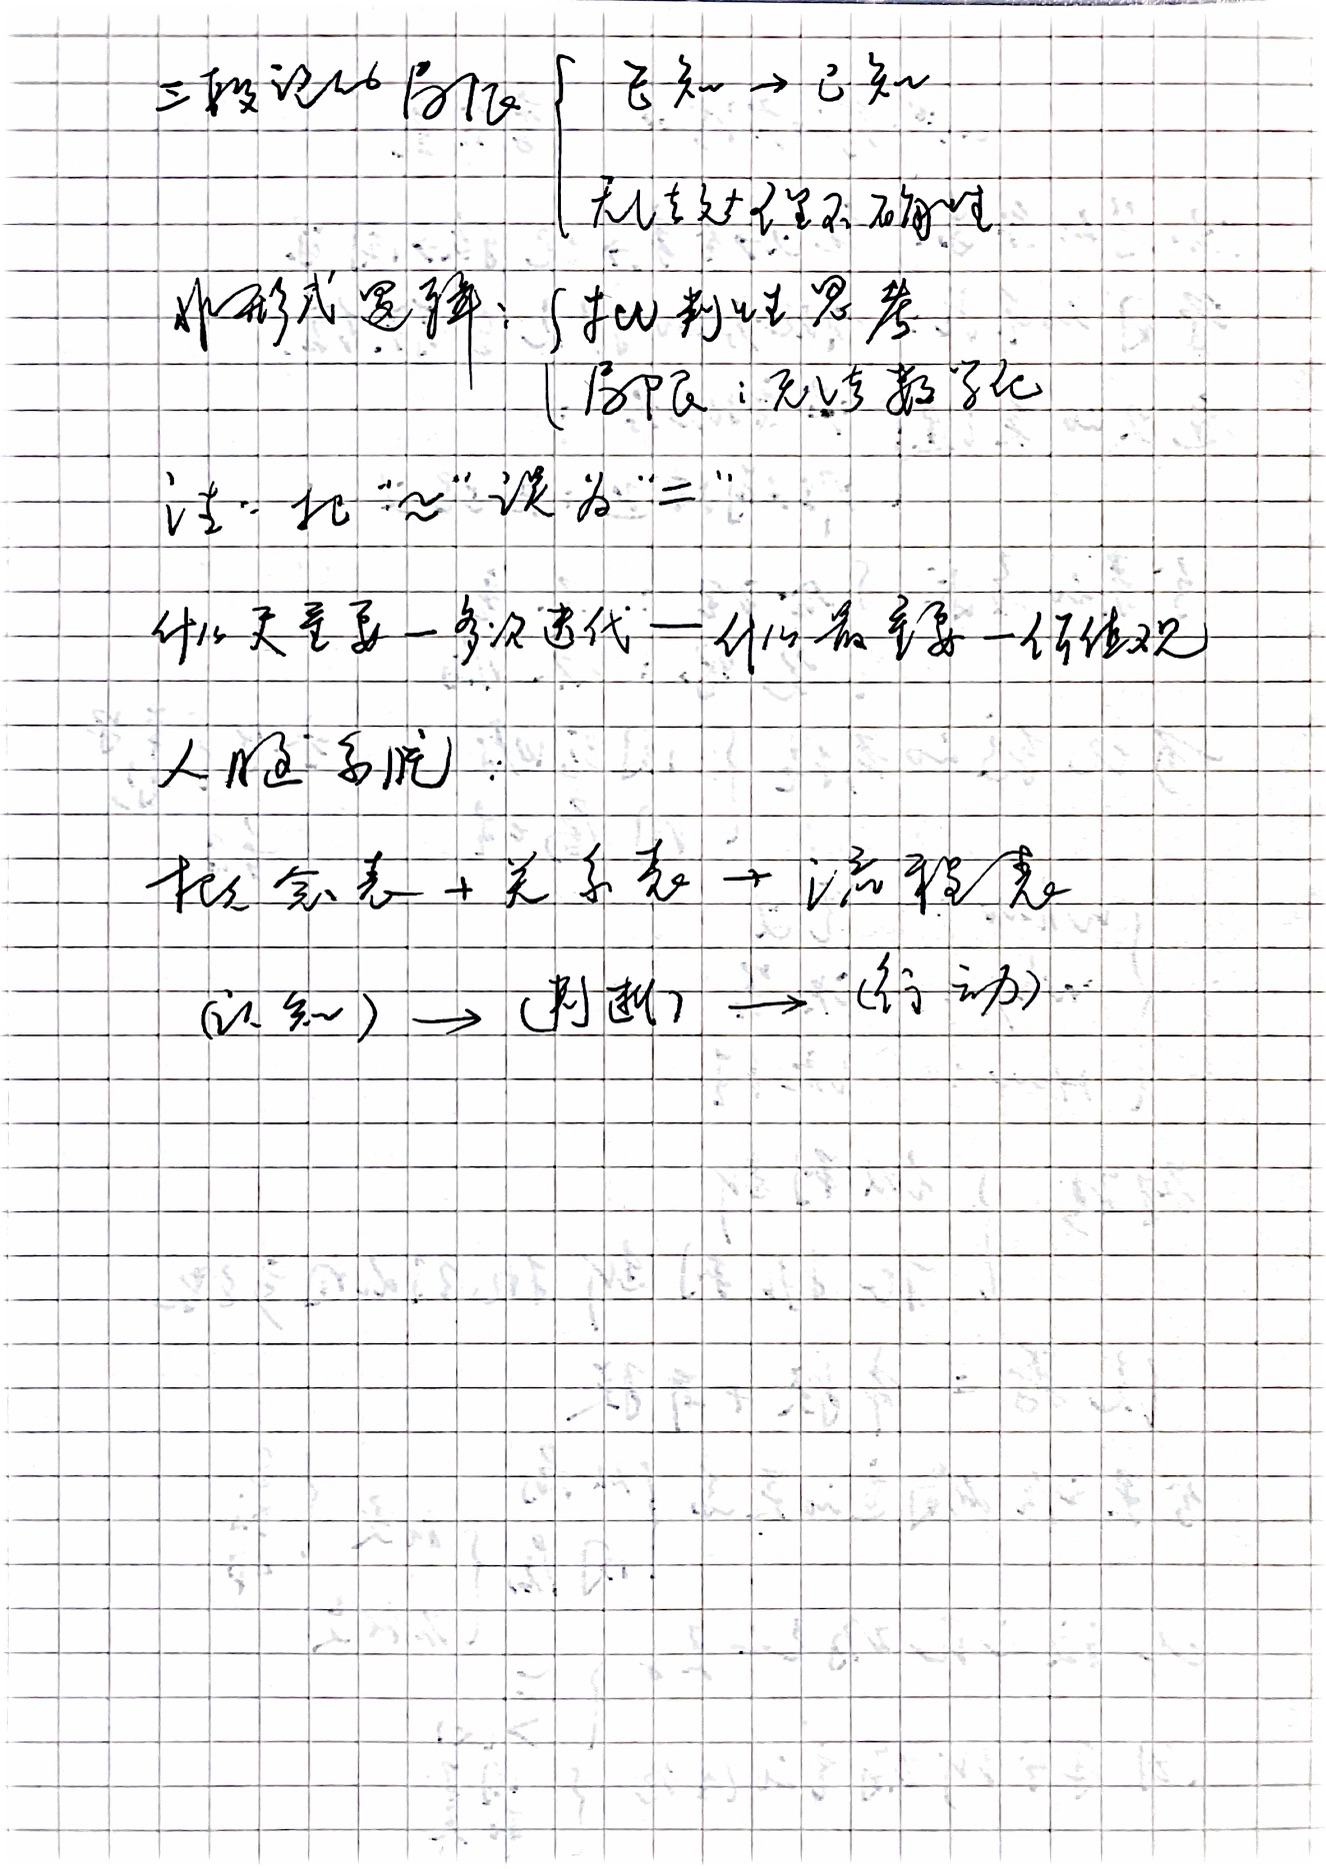 三段论的局限 { 已知 → 已知
无法处理不确性
非形式逻辑: { 批判性思考
局限: 无法数字化
注: 把“≈”误为“=”
什么更重要 — 多次迭代 — 什么最重要 — 价值观
人脑系统:
概念表 + 关系表 → 流程表
(认知) → (判断) → (行动)